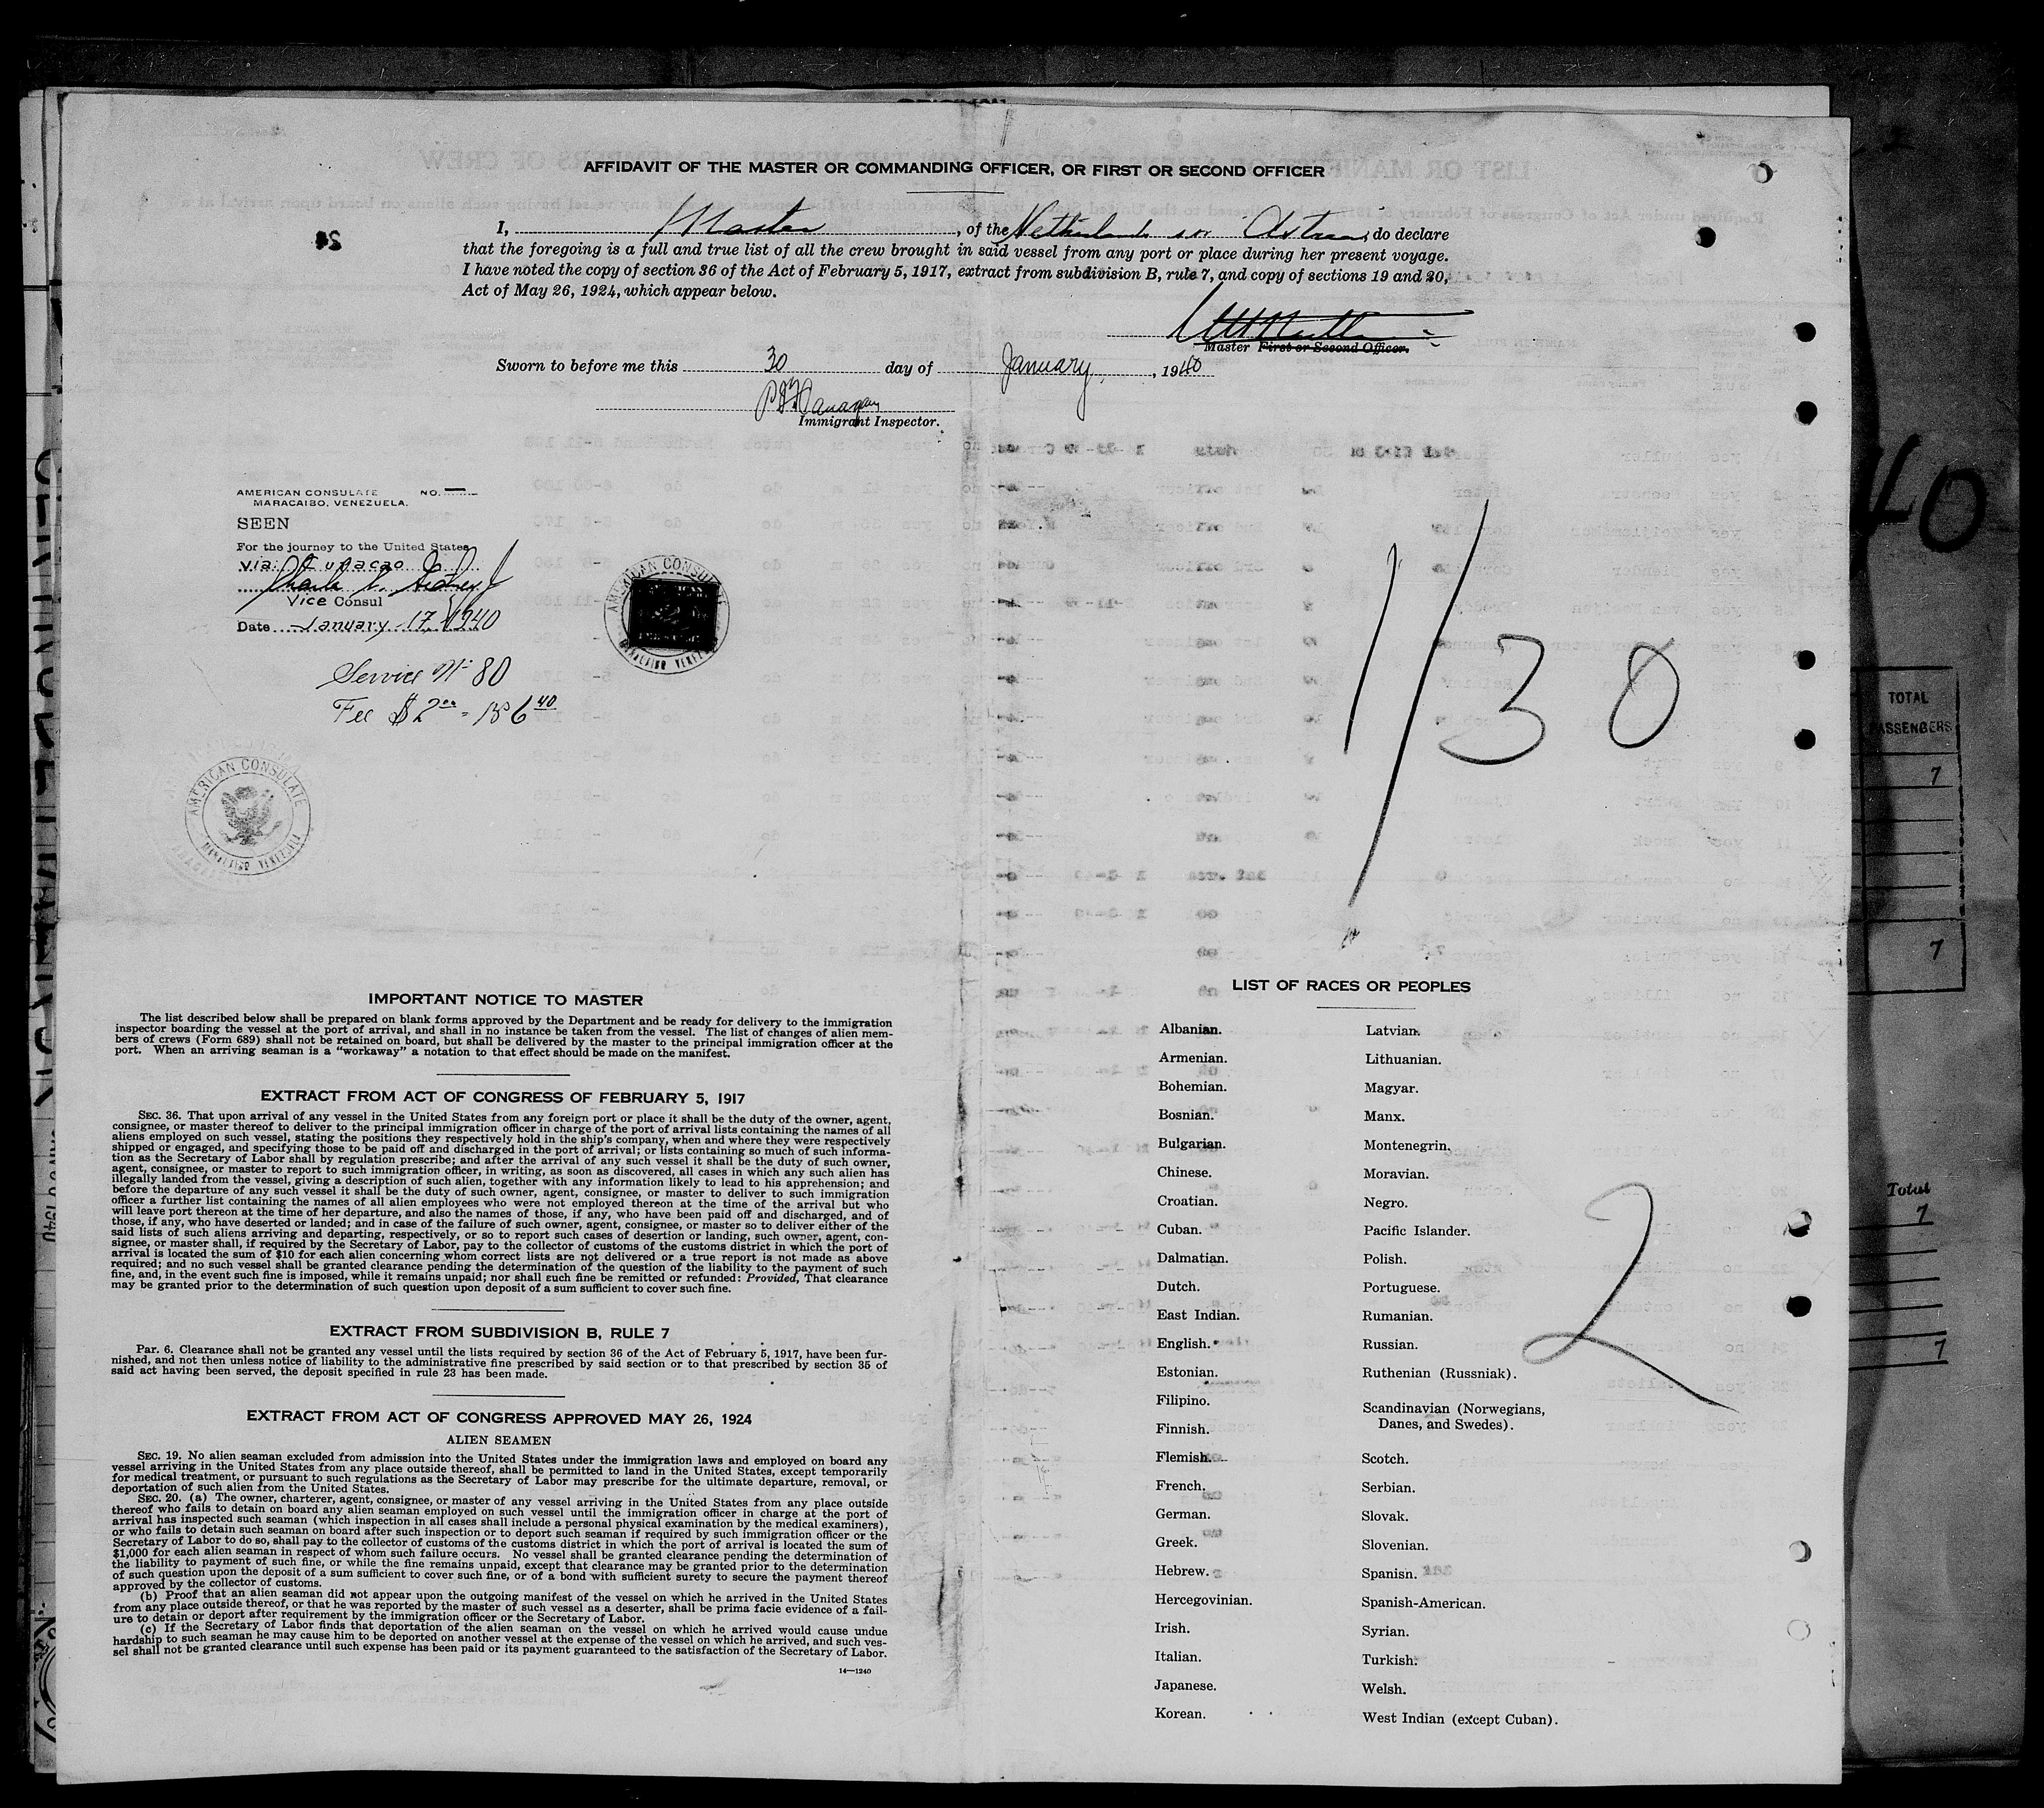 AFFIDAVIT OF THE MASTER OR COMMANDING OFFICER, OR FIRST OR SECOND OFFICER
I, Master, of the Netherlands do declare
that the foregoing is a full and true list of all the crew brought in said vessel from any port or place during her present voyage.
I have noted the copy of section 36 of the Act of February 5, 1917, extract from subdivision B, rule 7, and copy of sections 19 and 20,
Act of May 26, 1924, which appear below.
Master First or Second Officer.
Sworn to before me this 30 day of January, 1940
Immigrant Inspector.
AMERICAN CONSULATE NO.
MARACAIBO, VENEZUELA.
SEEN
For the journey to the United States
via: Curacao
Vice Consul
Date January 17, 1940
Service Nº 80
Fee $2.00 = Bs 6.40
AMERICAN CONSULATE
MARACAIBO VENEZUELA
AMERICAN CONSULATE
MARACAIBO VENEZUELA
1/30
2
IMPORTANT NOTICE TO MASTER
The list described below shall be prepared on blank forms approved by the Department and be ready for delivery to the immigration
inspector boarding the vessel at the port of arrival, and shall in no instance be taken from the vessel. The list of changes of alien mem-
bers of crews (Form 689) shall not be retained on board, but shall be delivered by the master to the principal immigration officer at the
port. When an arriving seaman is a "workaway" a notation to that effect should be made on the manifest.
EXTRACT FROM ACT OF CONGRESS OF FEBRUARY 5, 1917
SEC. 36. That upon arrival of any vessel in the United States from any foreign port or place it shall be the duty of the owner, agent,
consignee, or master thereof to deliver to the principal immigration officer in charge of the port of arrival lists containing the names of all
aliens employed on such vessel, stating the positions they respectively hold in the ship's company, when and where they were respectively
shipped or engaged, and specifying those to be paid off and discharged in the port of arrival; or lists containing so much of such informa-
tion as the Secretary of Labor shall by regulation prescribe; and after the arrival of any such vessel it shall be the duty of such owner,
agent, consignee, or master to report to such immigration officer, in writing, as soon as discovered, all cases in which any such alien has
illegally landed from the vessel, giving a description of such alien, together with any information likely to lead to his apprehension; and
before the departure of any such vessel it shall be the duty of such owner, agent, consignee, or master to deliver to such immigration
officer a further list containing the names of all alien employees who were not employed thereon at the time of the arrival but who
will leave port thereon at the time of her departure, and also the names of those, if any, who have been paid off and discharged, and of
those, if any, who have deserted or landed; and in case of the failure of such owner, agent, consignee, or master so to deliver either of the
said lists of such aliens arriving and departing, respectively, or so to report such cases of desertion or landing, such owner, agent, con-
signee, or master shall, if required by the Secretary of Labor, pay to the collector of customs of the customs district in which the port of
arrival is located the sum of $10 for each alien concerning whom correct lists are not delivered or a true report is not made as above
required; and no such vessel shall be granted clearance pending the determination of the question of the liability to the payment of such
fine, and, in the event such fine is imposed, while it remains unpaid; nor shall such fine be remitted or refunded: Provided, That clearance
may be granted prior to the determination of such question upon deposit of a sum sufficient to cover such fine.
EXTRACT FROM SUBDIVISION B, RULE 7
Par. 6. Clearance shall not be granted any vessel until the lists required by section 36 of the Act of February 5, 1917, have been fur-
nished, and not then unless notice of liability to the administrative fine prescribed by said section or to that prescribed by section 35 of
said act having been served, the deposit specified in rule 23 has been made.
EXTRACT FROM ACT OF CONGRESS APPROVED MAY 26, 1924
ALIEN SEAMEN
SEC. 19. No alien seaman excluded from admission into the United States under the immigration laws and employed on board any
vessel arriving in the United States from any place outside thereof, shall be permitted to land in the United States, except temporarily
for medical treatment, or pursuant to such regulations as the Secretary of Labor may prescribe for the ultimate departure, removal, or
deportation of such alien from the United States.
SEC. 20. (a) The owner, charterer, agent, consignee, or master of any vessel arriving in the United States from any place outside
thereof who fails to detain on board any alien seaman employed on such vessel until the immigration officer in charge at the port of
arrival has inspected such seaman (which inspection in all cases shall include a personal physical examination by the medical examiners),
or who fails to detain such seaman on board after such inspection or to deport such seaman if required by such immigration officer or the
Secretary of Labor to do so, shall pay to the collector of customs of the customs district in which the port of arrival is located the sum of
$1,000 for each alien seaman in respect of whom such failure occurs. No vessel shall be granted clearance pending the determination of
the liability to payment of such fine, or while the fine remains unpaid, except that clearance may be granted prior to the determination
of such question upon the deposit of a sum sufficient to cover such fine, or of a bond with sufficient surety to secure the payment thereof
approved by the collector of customs.
(b) Proof that an alien seaman did not appear upon the outgoing manifest of the vessel on which he arrived in the United States
from any place outside thereof, or that he was reported by the master of such vessel as a deserter, shall be prima facie evidence of a fail-
ure to detain or deport after requirement by the immigration officer or the Secretary of Labor.
(c) If the Secretary of Labor finds that deportation of the alien seaman on the vessel on which he arrived would cause undue
hardship to such seaman he may cause him to be deported on another vessel at the expense of the vessel on which he arrived, and such ves-
sel shall not be granted clearance until such expense has been paid or its payment guaranteed to the satisfaction of the Secretary of Labor.
14—1240
LIST OF RACES OR PEOPLES
Albanian.
Armenian.
Bohemian.
Bosnian.
Bulgarian.
Chinese.
Croatian.
Cuban.
Dalmatian.
Dutch.
East Indian.
English.
Estonian.
Filipino.
Finnish.
Flemish.
French.
German.
Greek.
Hebrew.
Hercegovinian.
Irish.
Italian.
Japanese.
Korean.
Latvian.
Lithuanian.
Magyar.
Manx.
Montenegrin.
Moravian.
Negro.
Pacific Islander.
Polish.
Portuguese.
Rumanian.
Russian.
Ruthenian (Russniak).
Scandinavian (Norwegians,
Danes, and Swedes).
Scotch.
Serbian.
Slovak.
Slovenian.
Spanish.
Spanish-American.
Syrian.
Turkish.
Welsh.
West Indian (except Cuban).
40
TOTAL
PASSENGERS
7
7
Total
7
7